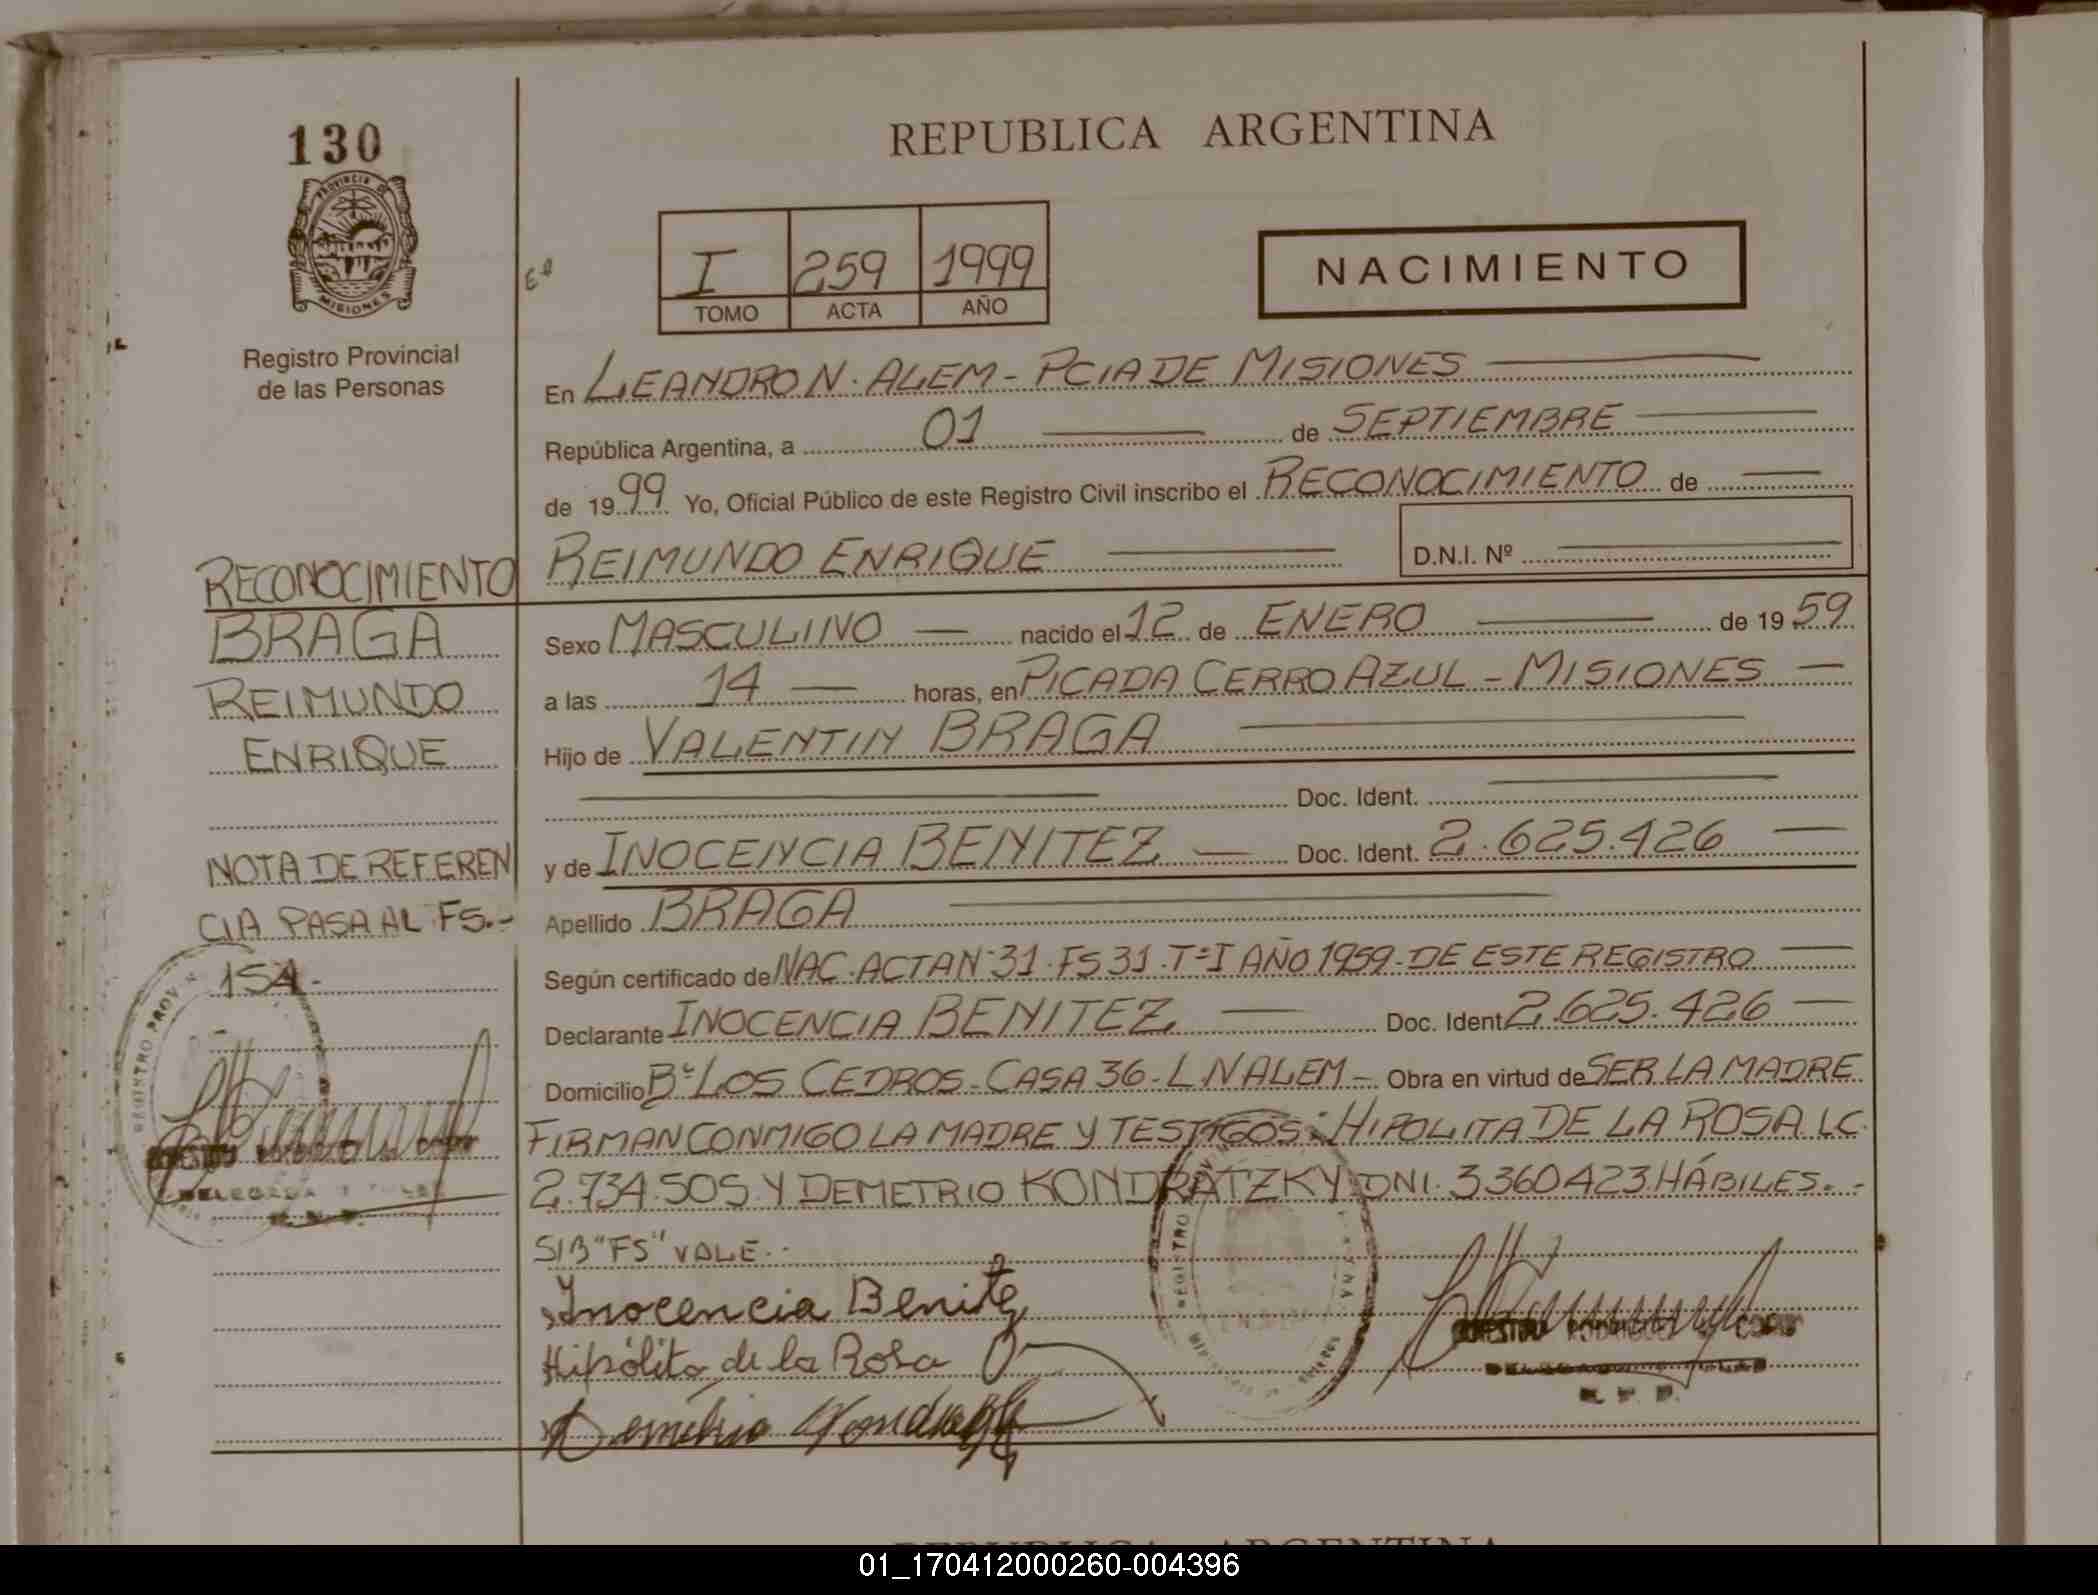 130
PROVINCIA DE
MISIONES
Registro Provincial
de las Personas
REPUBLICA ARGENTINA
I 259 1999
TOMO ACTA AÑO
NACIMIENTO
En LEANDRO N. ALEM - PCIA DE MISIONES
República Argentina, a 01 de SEPTIEMBRE
de 1999 Yo, Oficial Público de este Registro Civil inscribo el RECONOCIMIENTO de
REIMUNDO ENRIQUE D.N.I. Nº
Sexo MASCULINO nacido el 12 de ENERO de 1959
a las 14 horas, en PICADA CERRO AZUL - MISIONES
Hijo de VALENTIN BRAGA
Doc. Ident.
y de INOCENCIA BENITEZ Doc. Ident. 2.625.426
Apellido BRAGA
Según certificado de NAC. ACTA Nº 31. FS 31. Tº I AÑO 1959. DE ESTE REGISTRO
Declarante INOCENCIA BENITEZ Doc. Ident 2.625.426
Domicilio Bº LOS CEDROS - CASA 36 - L.N ALEM - Obra en virtud de SER LA MADRE
FIRMAN CONMIGO LA MADRE Y TESTIGOS: HIPOLITA DE LA ROSA LC.
2.734.505 Y DEMETRIO KONDRATZKY DNI. 3360423 HÁBILES.-
S/B "FS" VALE.-
Inocencia Benitez
Hipólita de la Rosa
RECONOCIMIENTO
BRAGA
REIMUNDO
ENRIQUE
NOTA DE REFEREN
CIA PASA AL FS.-
154.-
REGISTRO PROV
REGISTRO
REPUBLICA ARGENTINA
01_170412000260-004396